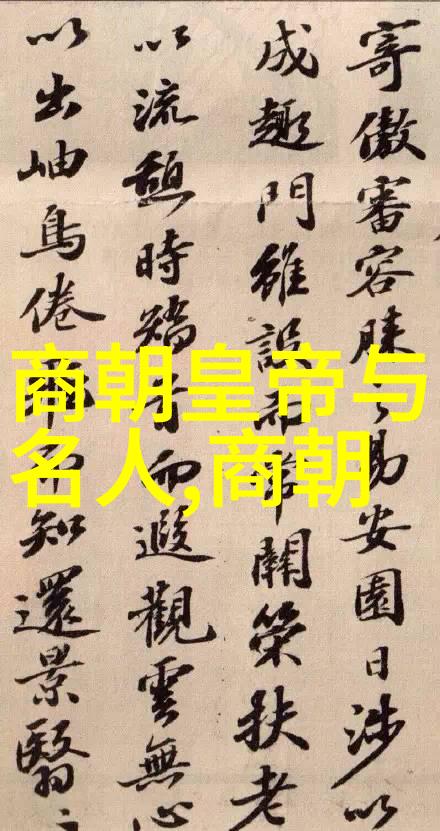 寄傲審容膝之易安園日涉以
成趣門雖設而常關策扶老
以流憩時矯首而遐觀雲無心
以出岫鳥倦飛而知還景翳
商朝皇帝与
名人,商朝